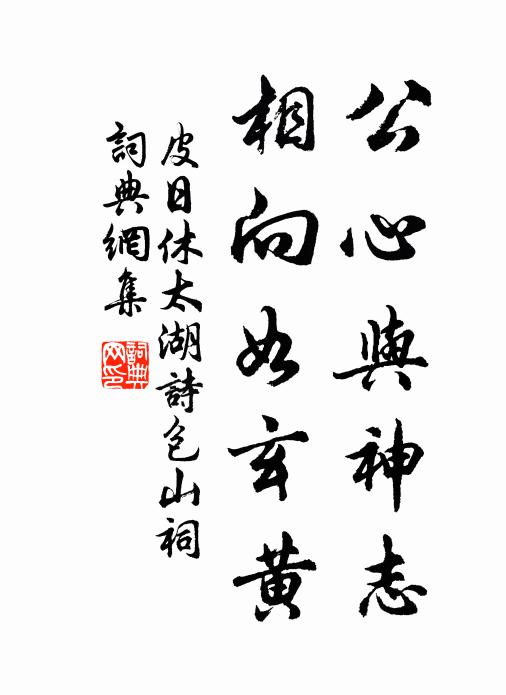 公心與神志
相向如玄黃
皮日休太湖詩包山祠
詞典網集
詞典網印